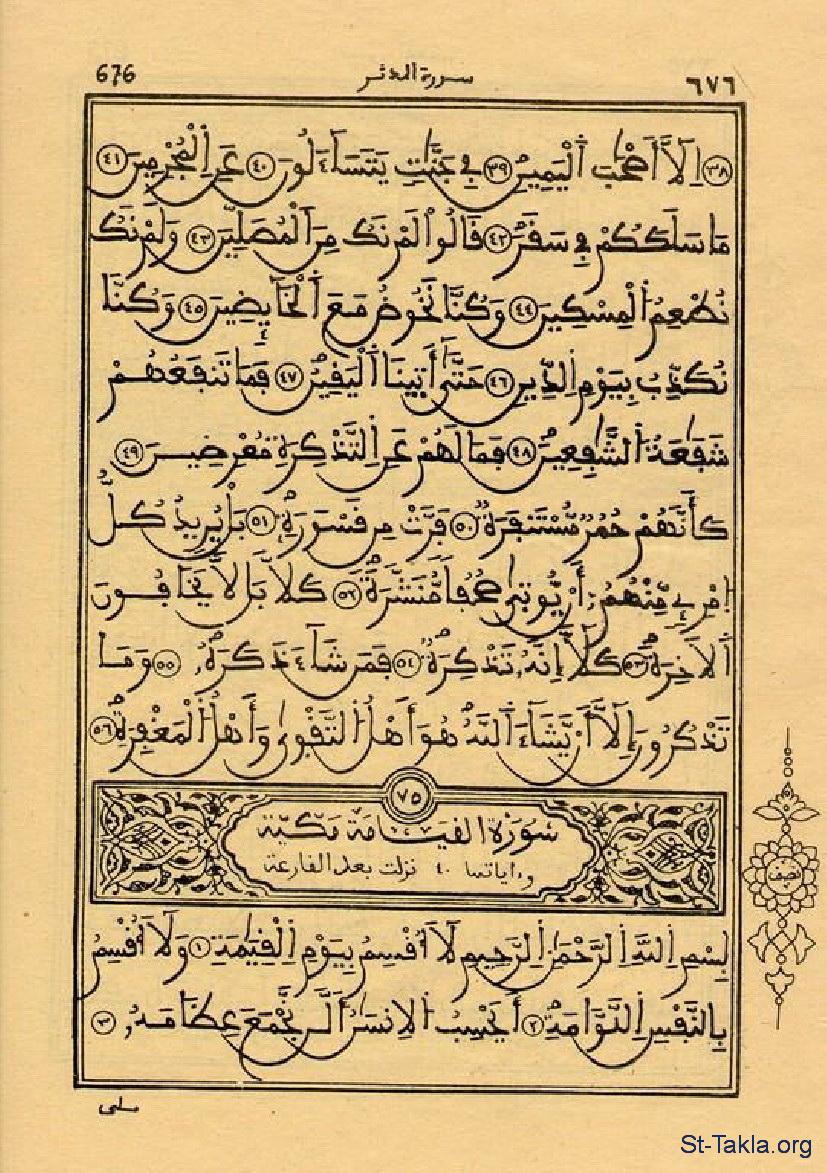 676 سورة المدثر ٦٧٦
٣٨ اِلَّآ أَصْحَٰبَ اَ۬لْيَمِينِ ٣٩ فِے جَنَّٰتٖ يَتَسَآءَلُونَ ٤٠ عَنِ اِ۬لْمُجْرِمِينَ ٤١
مَا سَلَكَكُمْ فِے سَقَرَ ٤٢ قَالُواْ لَمْ نَكُ مِنَ اَ۬لْمُصَلِّينَ ٤٣ وَلَمْ نَكُ
نُطْعِمُ اُ۬لْمِسْكِينَ ٤٤ وَكُنَّا نَخُوضُ مَعَ اَ۬لْخَآئِضِينَ ٤٥ وَكُنَّا
نُكَذِّبُ بِيَوْمِ اِ۬لدِّينِ ٤٦ حَتَّىٰٓ أَتَيٰنَا اَ۬لْيَقِينُ ٤٧ فَمَا تَنفَعُهُمْ
شَفَٰعَةُ اُ۬لشَّٰفِعِينَ ٤٨ فَمَا لَهُمْ عَنِ اِ۬لتَّذْكِرَةِ مُعْرِضِينَ ٤٩
كَأَنَّهُمْ حُمُرٞ مُّسْتَنفَرَةٞ ٥٠ فَرَّتْ مِن قَسْوَرَةِۢ ٥١ بَلْ يُرِيدُ كُلُّ
اُ۪مْرِےٕٖ مِّنْهُمُۥٓ أَنْ يُّوتَىٰ صُحُفاٗ مُّنَشَّرَةٗ ٥٢ كَلَّا بَل لَّا يَخَافُونَ
اَ۬لَاخِرَةَ ٥٣ كَلَّآ إِنَّهُۥ تَذْكِرَةٞ ٥٤ فَمَن شَآءَ ذَكَرَهُۥ ٥٥ وَمَا
تَذْكُرُونَ إِلَّآ أَنْ يَّشَآءَ اَ۬للَّهُ هُوَ أَهْلُ اُ۬لتَّقْوَىٰ وَأَهْلُ اُ۬لْمَغْفِرَةِ ٥٦
٧٥
سُورَةُ القيامة مكية
وءاياتها ٤٠ نزلت بعد القارعة
نصف
بِسْمِ اِ۬للَّهِ اِ۬لرَّحْمَٰنِ اِ۬لرَّحِيمِ لَآ أُقْسِمُ بِيَوْمِ اِ۬لْقِيَٰمَةِ ١ وَلَآ أُقْسِمُ
بِالنَّفْسِ اِ۬للَّوَّامَةِ ٢ أَيَحْسِبُ اُ۬لِانسَٰنُ أَلَّن نَّجْمَعَ عِظَامَهُۥ ٣
بلى
St-Takla.org